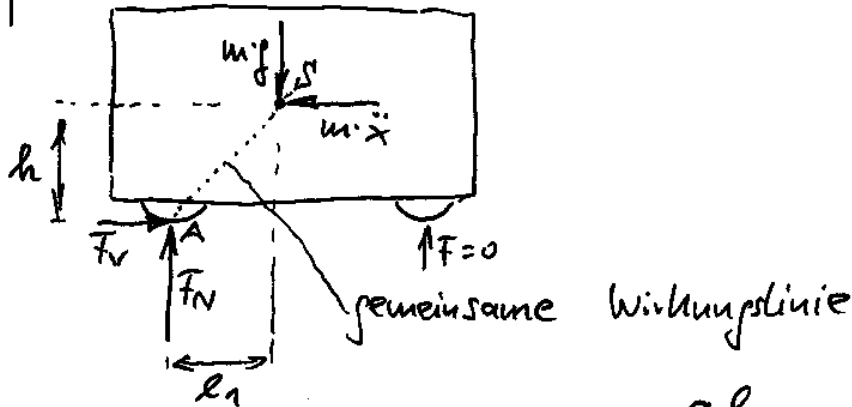 m·g
S
m·ẍ
h
A
F_V
F_N
F=0
gemeinsame Wirkungslinie
l₁